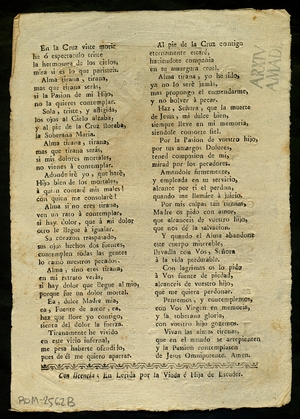 En la Cruz viste morir
he ó espectaculo triste
la hermosura de los cielos,
mira si es lo que pariste.
Alma tirana, tirana,
mas que tirana serás,
si la Pasion de mi Hijo,
no la quieres contemplar.
Sola, triste, y afligida,
los ojos al Cielo alzaba,
y al pie de la Cruz lloraba,
la Soberana Maria.
Alma tirana, tirana,
mas que tirana serás,
si mis dolores mortales,
no vienes á contemplar.
Adonde iré yo, que haré,
Hijo bien de los mortales,
á quien contaré mis males!
con quien me consolaré!
Alma si no eres tirana,
ven un rato á contemplar
si hay dolor, que á mi dolor
otro le llegue á igualar.
Su corazon traspasado,
sus ojos hechos dos fuentes,
contemplen todas las gentes
lo causó nuestro pecado.
Alma, sino eres tirana,
en mi retrato verás,
si hay dolor que llegue al mio,
porque fue un dolor mortal.
Ea, dulce Madre mia,
ea, Fuente de amor, ea,
haz que llore yo contigo,
sienta del dolor la fuerza.
Tiranamente he vivido
en este vicio infernal,
me pesa haberte ofendido,
pues de él me quiero apartar.
Al pie de la Cruz contigo
eternamente estaré,
haciendote compañia
en tu amargura cruel.
Alma tirana, yo he sido,
ya no lo seré jamás,
mas propongo el enmendarme,
y no bolver á pecar.
Haz, Señora, que la muerte
de Jesus, mi dulce bien,
siempre lleve en mi memoria,
siendole consorte fiel.
Por la Pasion de vuestro hijo,
por sus amargos Dolores,
tened compasion de mis,
mirad por los pecadores.
Amandole firmemente,
y empleada en su servicio,
alcance por ti el perdon,
quando me llamáre á juicio.
Por mis culpas tan inmensas,
Madre os pido con amor,
que alcanceis de vuestro hijo,
que nos dé la salvacion.
Y quando el Alma abandone
este cuerpo miserable,
llevadla con Vos, Señora
á la vida perdurable.
Con lagrimas os lo pido
á Vos fuente de piedad,
alcanceis de vuestro hijo,
que me quiera perdonar.
Penemos, y contemplemos,
con Vos Virgen en memoria,
y la soberana gloria,
con vuestro hijo gozemos.
Vivan las almas tiernas,
que en el mundo se arrepienten
y la Pasion contemplasen
de Jesus Omnipotente. Amen.
Con licencia: En Lerida por la Viuda é Hija de Escuder.
POM-2562B
ARXIV